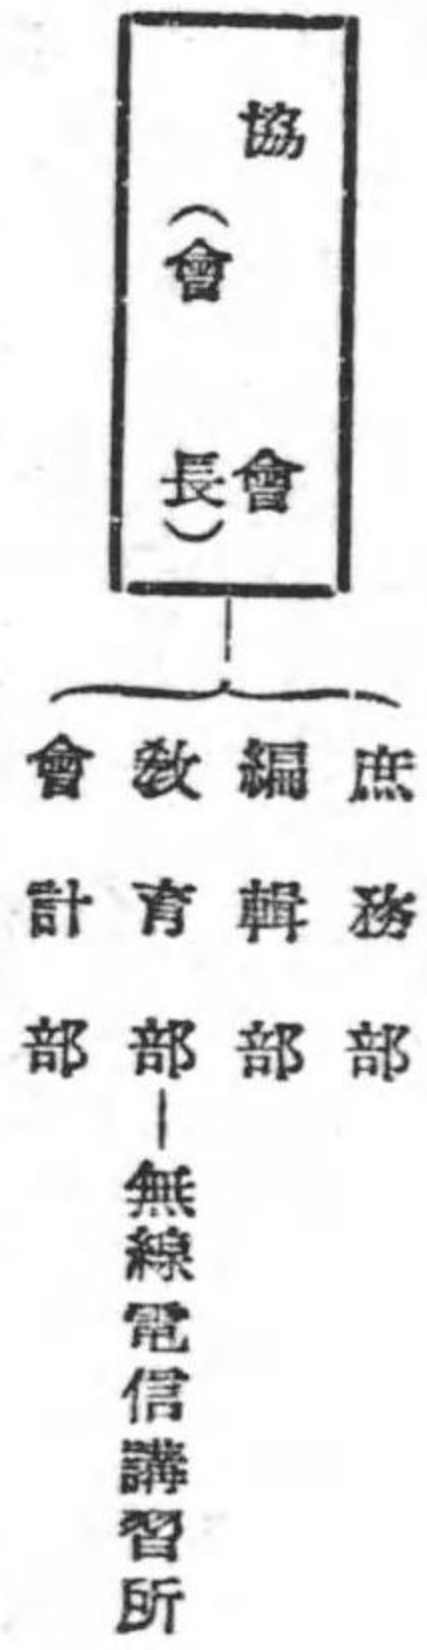 協會
（會長）
庶務部
編輯部
敎育部
無線電信講習所
會計部